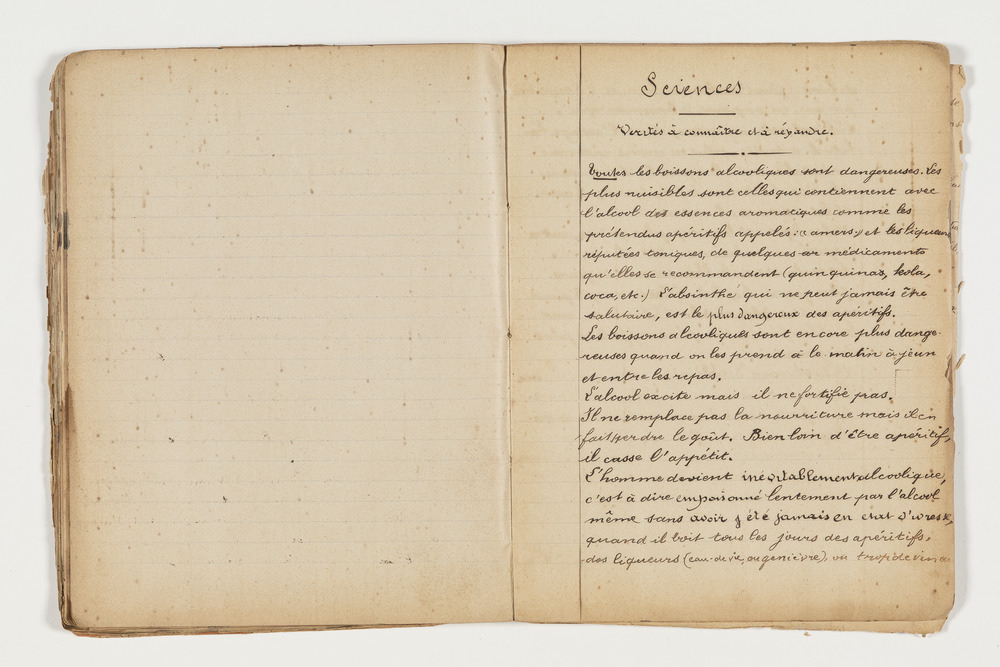 Sciences
Verités à connaître et à répandre.
Toutes les boissons alcooliques sont dangereuses. Les
plus nuisibles sont celles qui contiennent avec
l'alcool des essences aromatiques comme les
prétendus apéritifs appelés: « amers » et les liqueurs
réputées toniques, de quelques médicaments
qu'elles se recommandent (quinquinas, kola,
coca, etc.) L'absinthe qui ne peut jamais être
salutaire, est le plus dangereux des apéritifs.
Les boissons alcooliques sont encore plus dange-
reuses quand on les prend à le matin à jeun
et entre les repas.
L'alcool excite mais il ne fortifie pas.
Il ne remplace pas la nourriture mais il en
fait perdre le goût. Bien loin d'être apéritif,
il casse l'appétit.
L'homme devient inévitablement alcoolique,
c'est à dire empoisonné lentement par l'alcool
même sans avoir été jamais en etat d'ivresse,
quand il boit tous les jours des apéritifs,
des liqueurs (eau-de-vie, ou genièvre), ou trop de vin